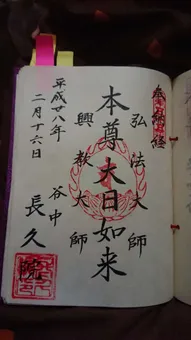 奉納経
弘法大師
本尊大日如来
興教大師
平成廿八年
二月十六日
谷中
長久院